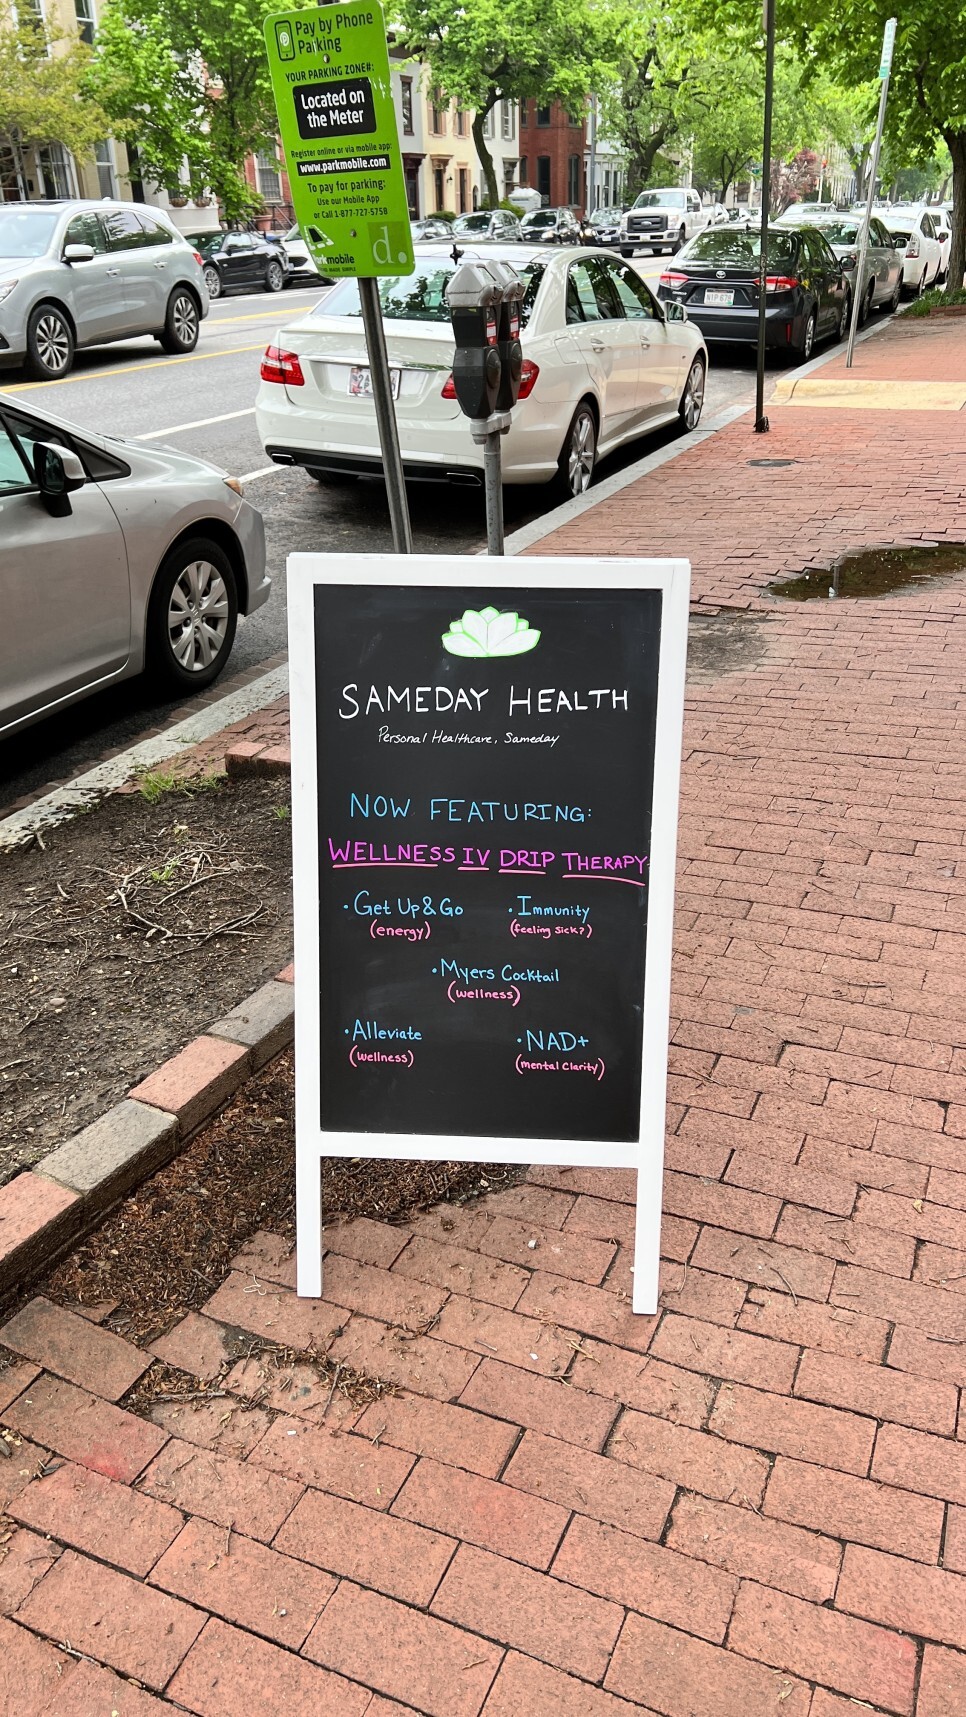 Pay by Phone
Parking
YOUR PARKING ZONE#:
Located on
the Meter
Register online or via mobile app:
www.parkmobile.com
To pay for parking:
Use our Mobile App
or Call 1-877-727-5758
parkmobile
d.
SAMEDAY HEALTH
Personal Healthcare, Sameday
NOW FEATURING:
WELLNESS IV DRIP THERAPY
• Get Up & Go
(energy)
• Immunity
(feeling sick?)
• Myers Cocktail
(wellness)
• Alleviate
(wellness)
• NAD+
(mental clarity)